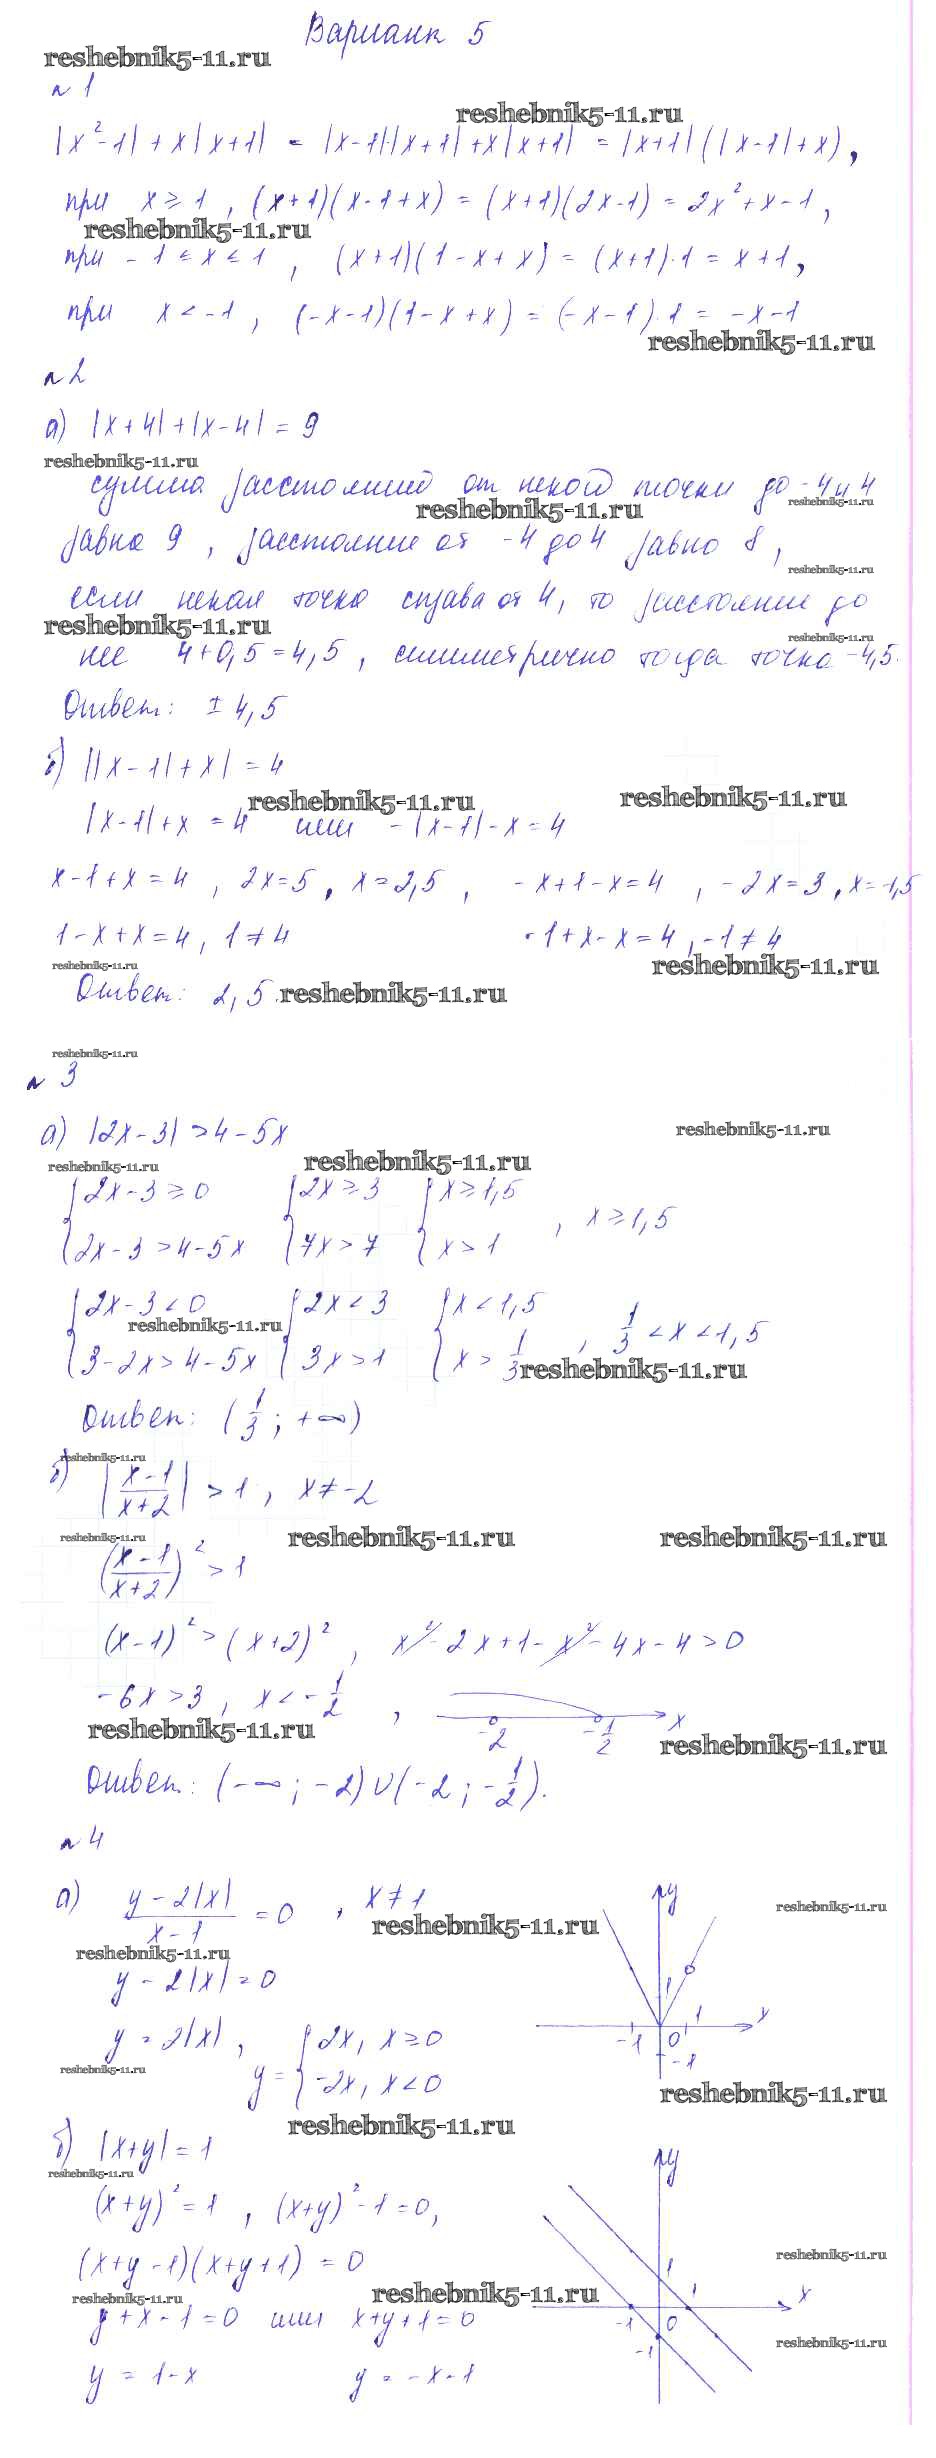 Вариант 5
reshebnik5-11.ru
№ 1
reshebnik5-11.ru
|x²-1| + x|x+1| = |x-1||x+1| + x|x+1| = |x+1|(|x-1|+x),
при x ≥ 1, (x+1)(x-1+x) = (x+1)(2x-1) = 2x²+x-1,
reshebnik5-11.ru
при -1 ≤ x < 1, (x+1)(1-x+x) = (x+1)·1 = x+1,
при x < -1, (-x-1)(1-x+x) = (-x-1)·1 = -x-1
reshebnik5-11.ru
№ 2
а) |x+4|+|x-4| = 9
reshebnik5-11.ru
сумма расстояний от некой точки до -4 и 4
reshebnik5-11.ru reshebnik5-11.ru
равна 9, расстояние от -4 до 4 равно 8,
reshebnik5-11.ru
если некая точка справа от 4, то расстояние до
reshebnik5-11.ru reshebnik5-11.ru
нее 4+0,5=4,5, симметрично тогда точка -4,5.
Ответ: ± 4,5
б) ||x-1|+x| = 4
reshebnik5-11.ru reshebnik5-11.ru
|x-1|+x = 4 или -|x-1|-x = 4
x-1+x = 4, 2x=5, x=2,5, -x+1-x=4, -2x=3, x=-1,5
1-x+x=4, 1≠4 -1+x-x=4, -1≠4
reshebnik5-11.ru reshebnik5-11.ru
Ответ: 2,5. reshebnik5-11.ru
reshebnik5-11.ru
№ 3
а) |2x-3| > 4-5x reshebnik5-11.ru
reshebnik5-11.ru reshebnik5-11.ru
{2x-3 ≥ 0 {2x ≥ 3 {x ≥ 1,5
2x-3 > 4-5x 7x > 7 x > 1 , x ≥ 1,5
{2x-3 < 0 {2x < 3 {x < 1,5
reshebnik5-11.ru
3-2x > 4-5x 3x > 1 x > 1/3 , 1/3 < x < 1,5
reshebnik5-11.ru
Ответ: (1/3; +∞)
reshebnik5-11.ru
б) |(x-1)/(x+2)| > 1, x ≠ -2
reshebnik5-11.ru reshebnik5-11.ru reshebnik5-11.ru
((x-1)/(x+2))² > 1
(x-1)² > (x+2)², x²-2x+1-x²-4x-4 > 0
-6x > 3, x < -1/2, -2 -1/2 x
reshebnik5-11.ru reshebnik5-11.ru
Ответ: (-∞; -2)∪(-2; -1/2).
№ 4
а) (y-2|x|)/(x-1) = 0, x ≠ 1 y
reshebnik5-11.ru reshebnik5-11.ru
reshebnik5-11.ru
y - 2|x| = 0 1
y = 2|x|, y = {2x, x ≥ 0 -1 0 1 x
-2x, x < 0 -1
reshebnik5-11.ru reshebnik5-11.ru
reshebnik5-11.ru
б) |x+y| = 1 y
reshebnik5-11.ru
(x+y)² = 1, (x+y)²-1 = 0,
(x+y-1)(x+y+1) = 0 1 reshebnik5-11.ru
reshebnik5-11.ru reshebnik5-11.ru 1 x
y+x-1=0 или x+y+1=0 -1 0
-1 reshebnik5-11.ru
y = 1-x y = -x-1